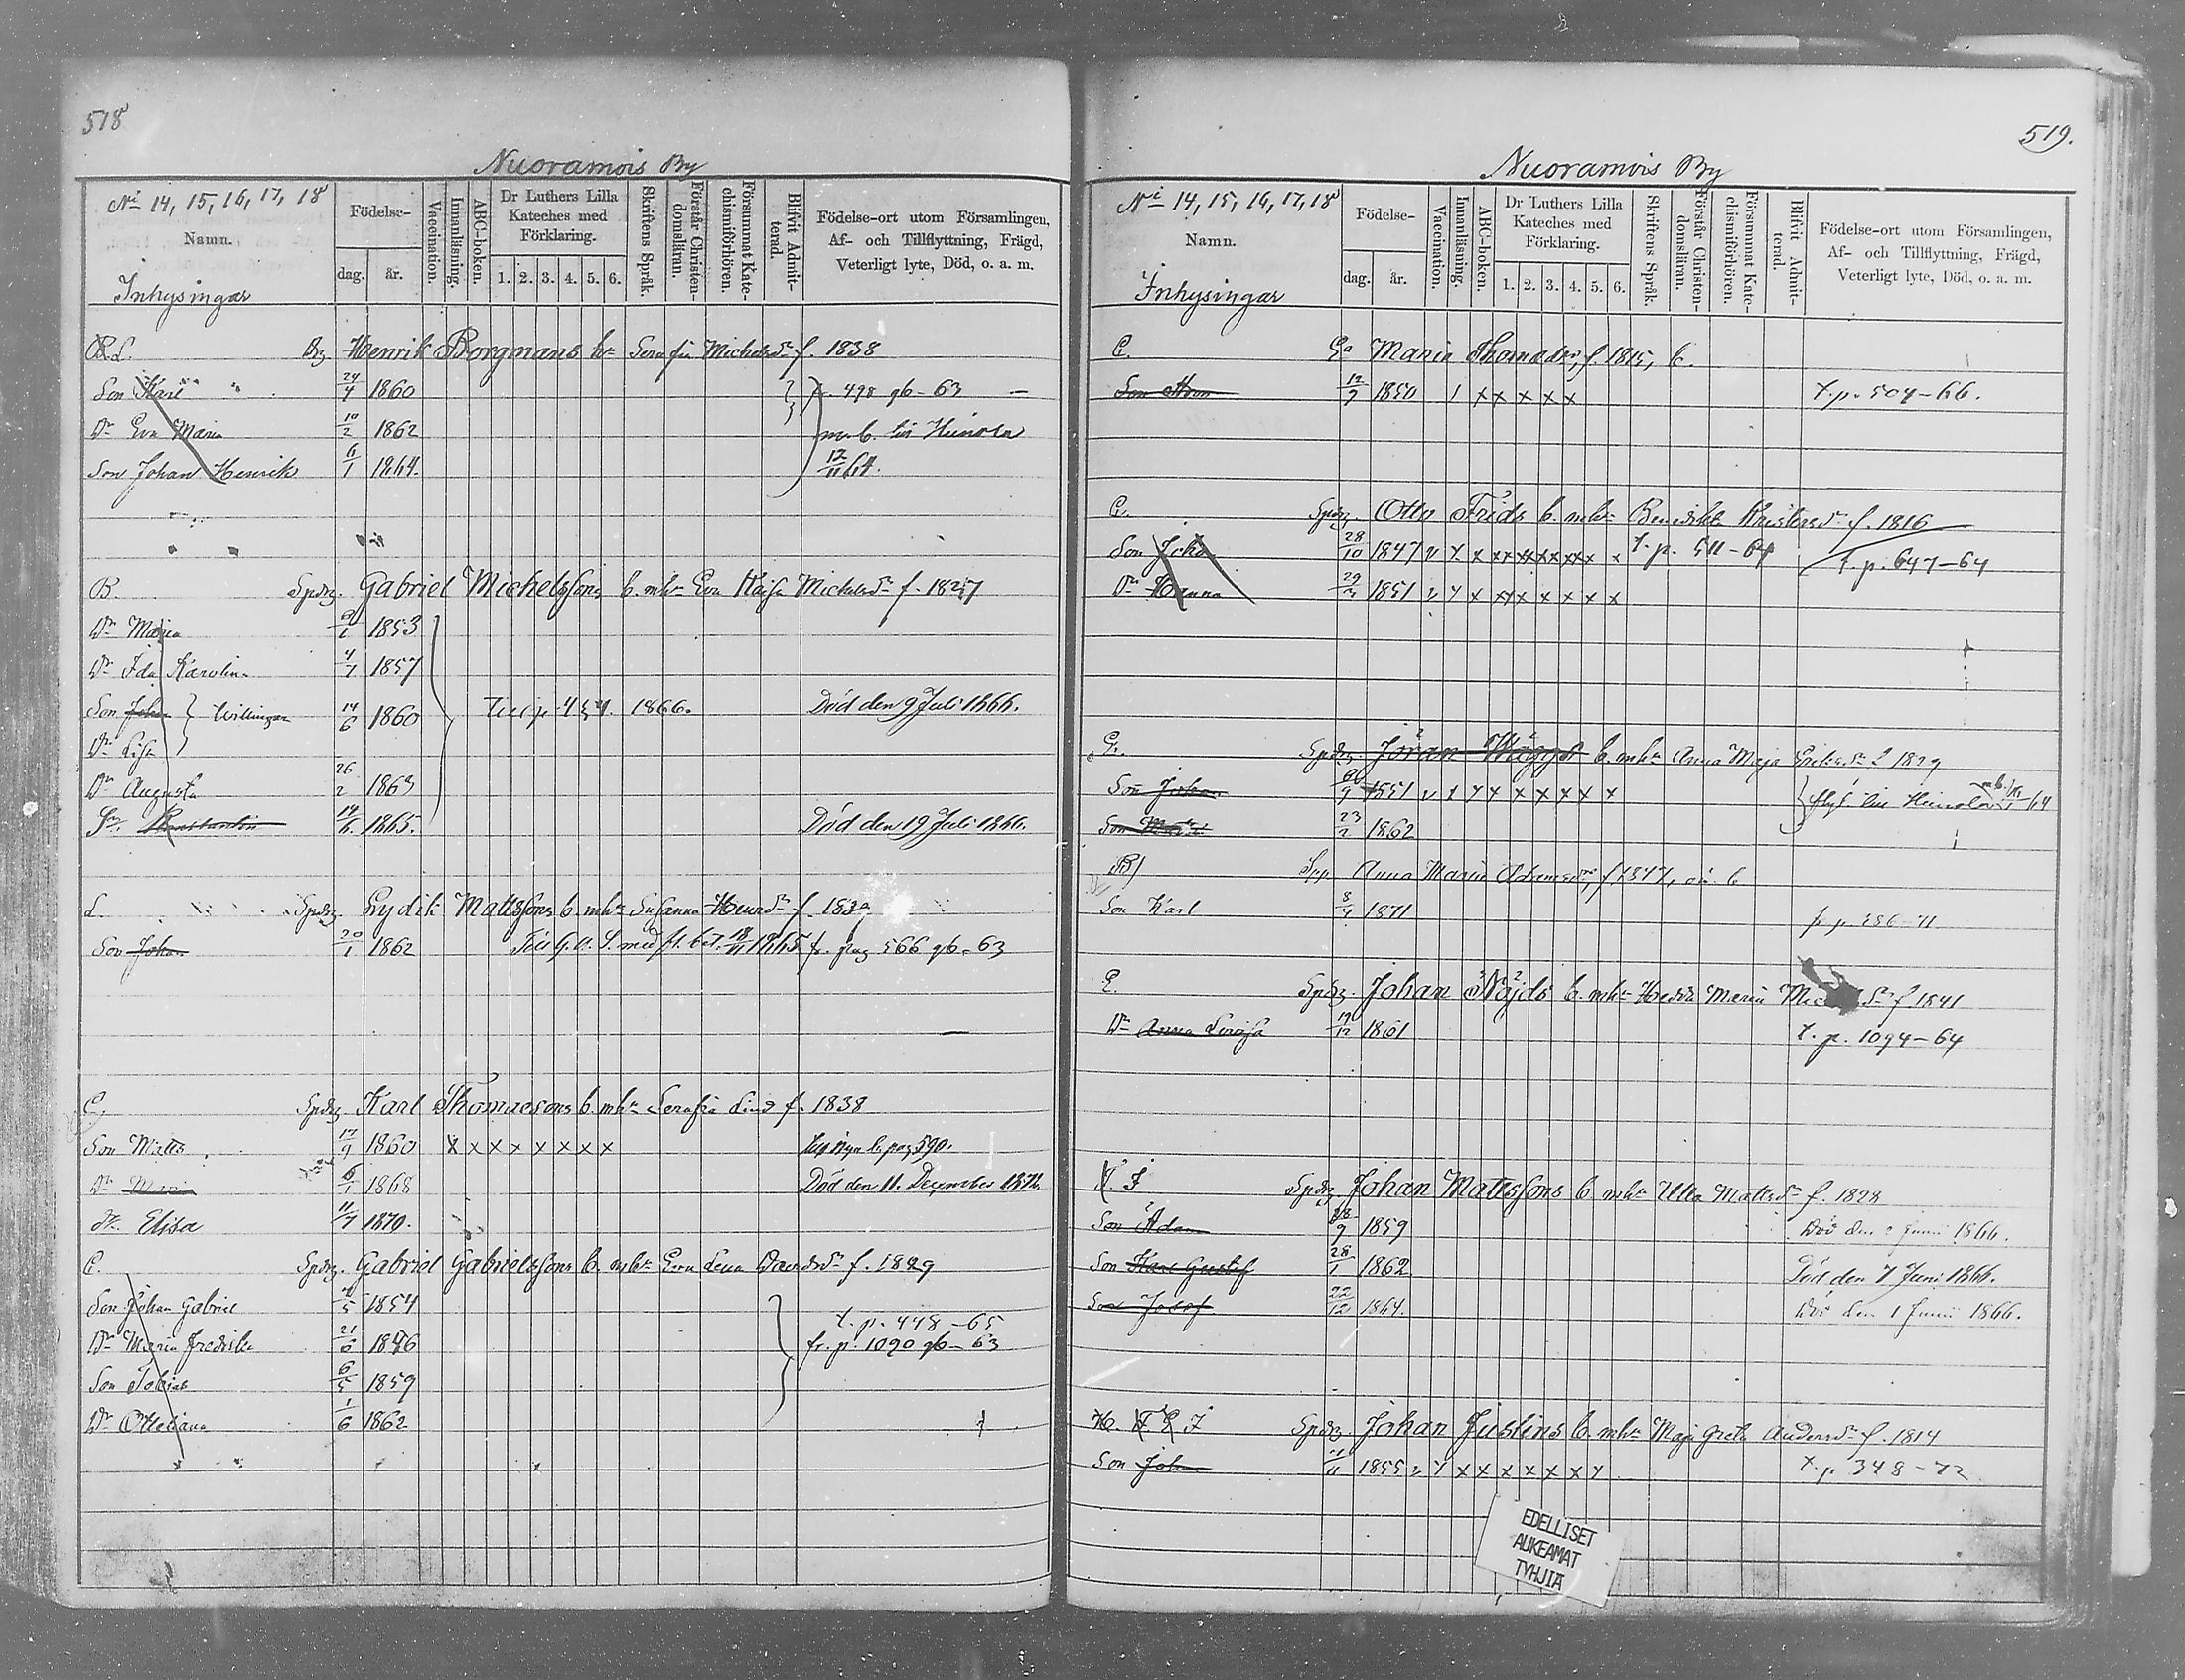 518
Nuoramois By
Ni 14, 15, 16, 17, 18
Namn.
Inhysingar
Födelse-
dag. år.
Vaccination.
Innanläsning.
ABC-boken.
Dr Luthers Lilla Kateches med Förklaring.
1. 2. 3. 4. 5. 6.
Skriftens Språk.
Förstår Christen-domsläran.
Försummat Kate-chismiförhören.
Blifvit Admit-terad.
Födelse-ort utom Församlingen,
Af- och Tillflyttning, Frägd,
Veterligt lyte, Död, o. a. m.
Henrik Borgmans Serafia Michelsdr f. 1838
Son Karl 24/4 1860 fr. 498 qb-63
Dr Eva Maria 10/2 1862
Son Johan Henrik 6/1 1864. 12/11 64.
B. Spdrg. Gabriel Michelssons b. mhr Eva Kaisa Michelsdr f. 1827
Dr Maria 1853
Dr Ida Karolin 4/7 1857
Son Johan Tvillingar 14/6 1860 1866. Död den 9 Juli 1866.
Dr Lisa
Dr Augusta 26/2 1863
Sn. Konstantin 14/6 1865. Död den 19 Juli 1866.
L. Spdrg. Mattssons b. mhr Susanna Henrdr f.
Son Johan 20/1 1862 1865 fr. pag 566 qb-63
C. Spdrg Karl Thomassons b. mhr Serafia Lind f. 1838
Son Matts 17/9 1860 x x x x x x x x pag 590.
Dr Maria 6/1 1868 Död den 11. December 1872
Dr. Elisa 11/7 1870.
C. Spdrg. Gabriel Gabrielssons b. mhr Eva Lena Davdsdr f. 1829
Son Johan Gabriel 1854 t. p. 448-65
Dr Maria Fredrika 21/6 1846 fr. p. 1090 qb-63
Son Tobias 6/5 1859
Dr Ottiliana 1/6 1862
519.
Nuoramois By
Ni 14, 15, 16, 17, 18
Namn.
Inhysingar
Födelse-
dag. år.
Vaccination.
Innanläsning.
ABC-boken.
Dr Luthers Lilla Kateches med Förklaring.
1. 2. 3. 4. 5. 6.
Skriftens Språk.
Förstår Christen-domsläran.
Försummat Kate-chismiförhören.
Blifvit Admit-terad.
Födelse-ort utom Församlingen,
Af- och Tillflyttning, Frägd,
Veterligt lyte, Död, o. a. m.
C. Maria Thomasdr, f. 1815, b.
Son 12/9 1850 x x x x x t. p. 504-66.
Spdrg. Otto Frids b. mhr Benedikta Kristersdr f. 1816
Son Joha 28/10 1847 t. p. 511-64 t. p. 647-64
Dr Hanna 1851
Spdrg. Jöran Wäggs b. mhr Anna Maja f 1829
Son Johan 1851
Son 23/2 1862
Anna Maria f. 1847,
Son Karl 8/4 1871
E. Spdrg. Johan Nöjds b. mhr Hedda Maria f 1841
Dr Anna 19/12 1861 t. p. 1094-64
Spdrg Johan Mattssons b mhr Ulla Mattsdr f. 1828
Son Adam 28/9 1859 Död den Junii 1866.
Son Karl Gustaf 28/1 1862 Död den 7 Juni 1866.
Son Josef 22/12 1864. Död den 1 Junii 1866.
Spdrg. Johan Justins b. mhr Maja Greta Andersdr f. 1814
Son Johan 1855 t. p. 348-72
EDELLISET
AUKEAMAT
TYHJIÄ